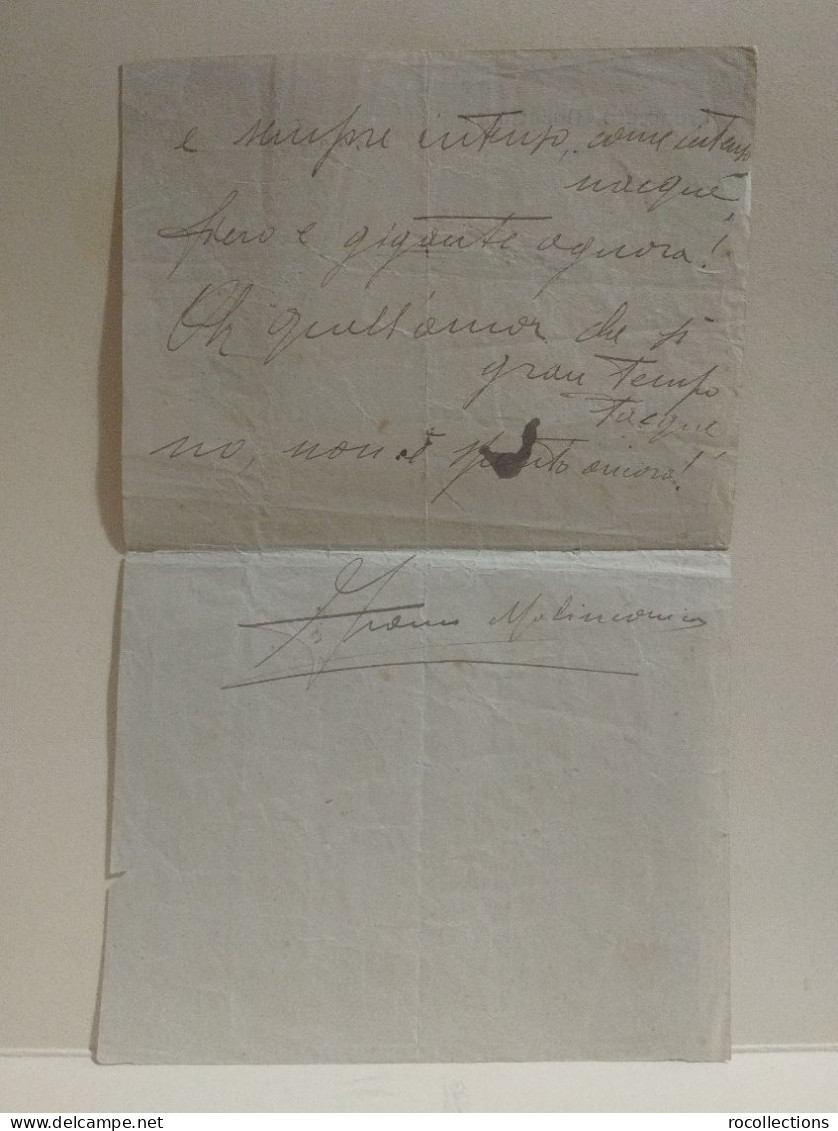 e sempre intenso, come intenso
nacque
fiero e gigante ognora!
Oh quell'amor che sì
gran tempo
tacque
no, non è spento ancora!
Malinconico
rocollections